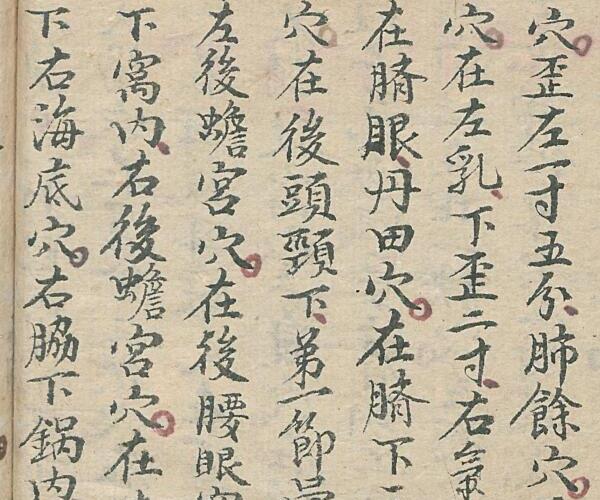 穴歪左一寸五分肺餘穴
穴在左乳下歪二寸右氣
在臍眼丹田穴在臍下一
穴在後頭頸下第一節
左後蟾宮穴在後腰眼
下窩内右後蟾宮穴在
下右海底穴右脇下鍋内